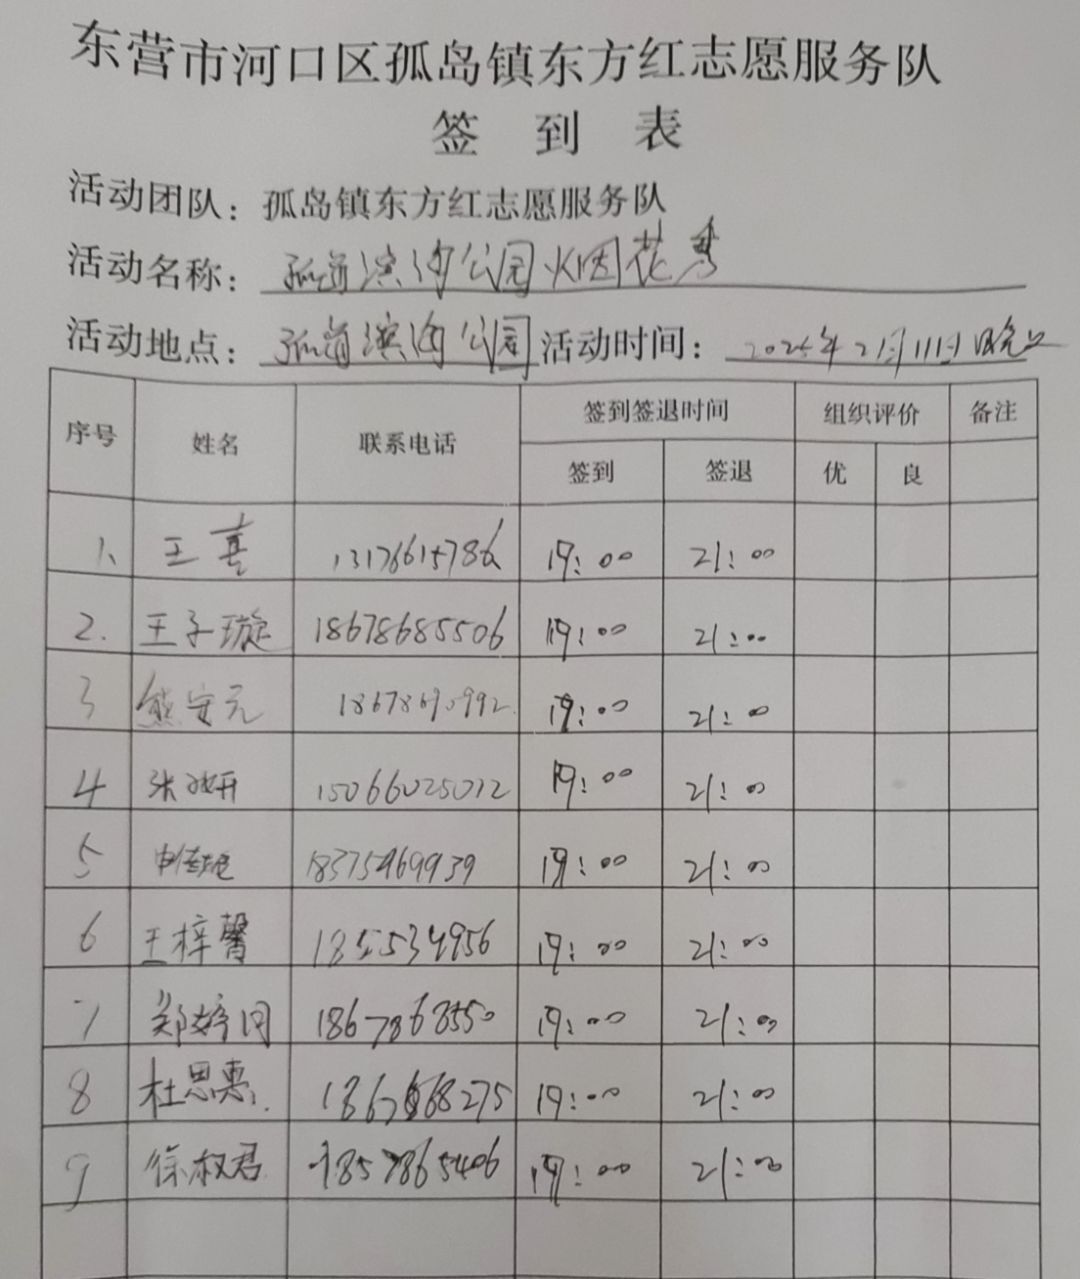 东营市河口区孤岛镇东方红志愿服务队
签 到 表
活动团队：孤岛镇东方红志愿服务队
活动名称：孤岛滨海公园烟花秀
活动地点：孤岛滨海公园 活动时间：2025年2月11日晚上
序号 姓名 联系电话 签到签退时间 组织评价 备注
签到 签退 优 良
1、 王喜 13176615786 19：00 21：00
2. 王子璇 18678685506 19：00 21：00
3 熊安元 19：00 21：00
4 15066025012 19：00 21：00
5 18375469939 19：00 21：00
6 王梓馨 1855534956 19：00 21：00
7 郑婷 1867868550 19：00 21：00
8 杜思惠 19：00 21：00
9 徐淑君 19：00 21：00